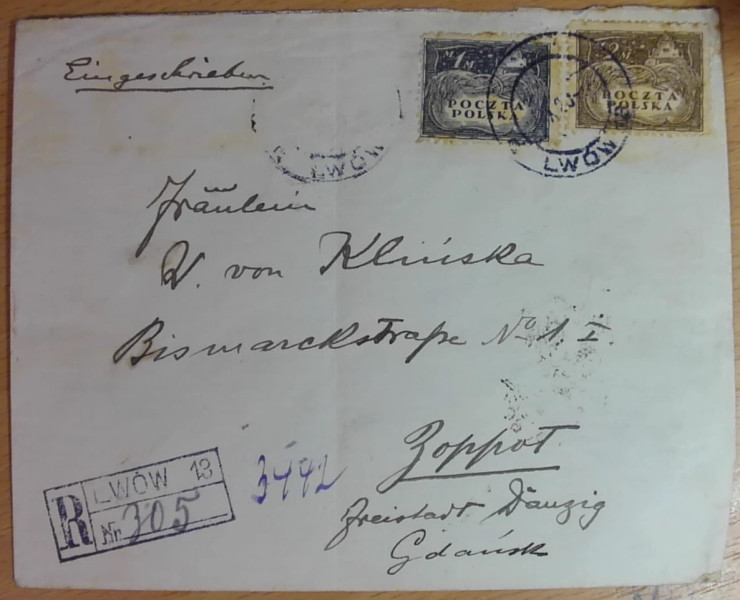 Eingeschrieben
1 M M
POCZTA
POLSKA
2 M
POCZTA
POLSKA
LWÓW
LWÓW
Fräulein
W. von Klińska
Bismarckstraße No 1. I.
Zoppot
Freistadt Danzig
Gdańsk
R LWÓW 13
Nr. 305
3492